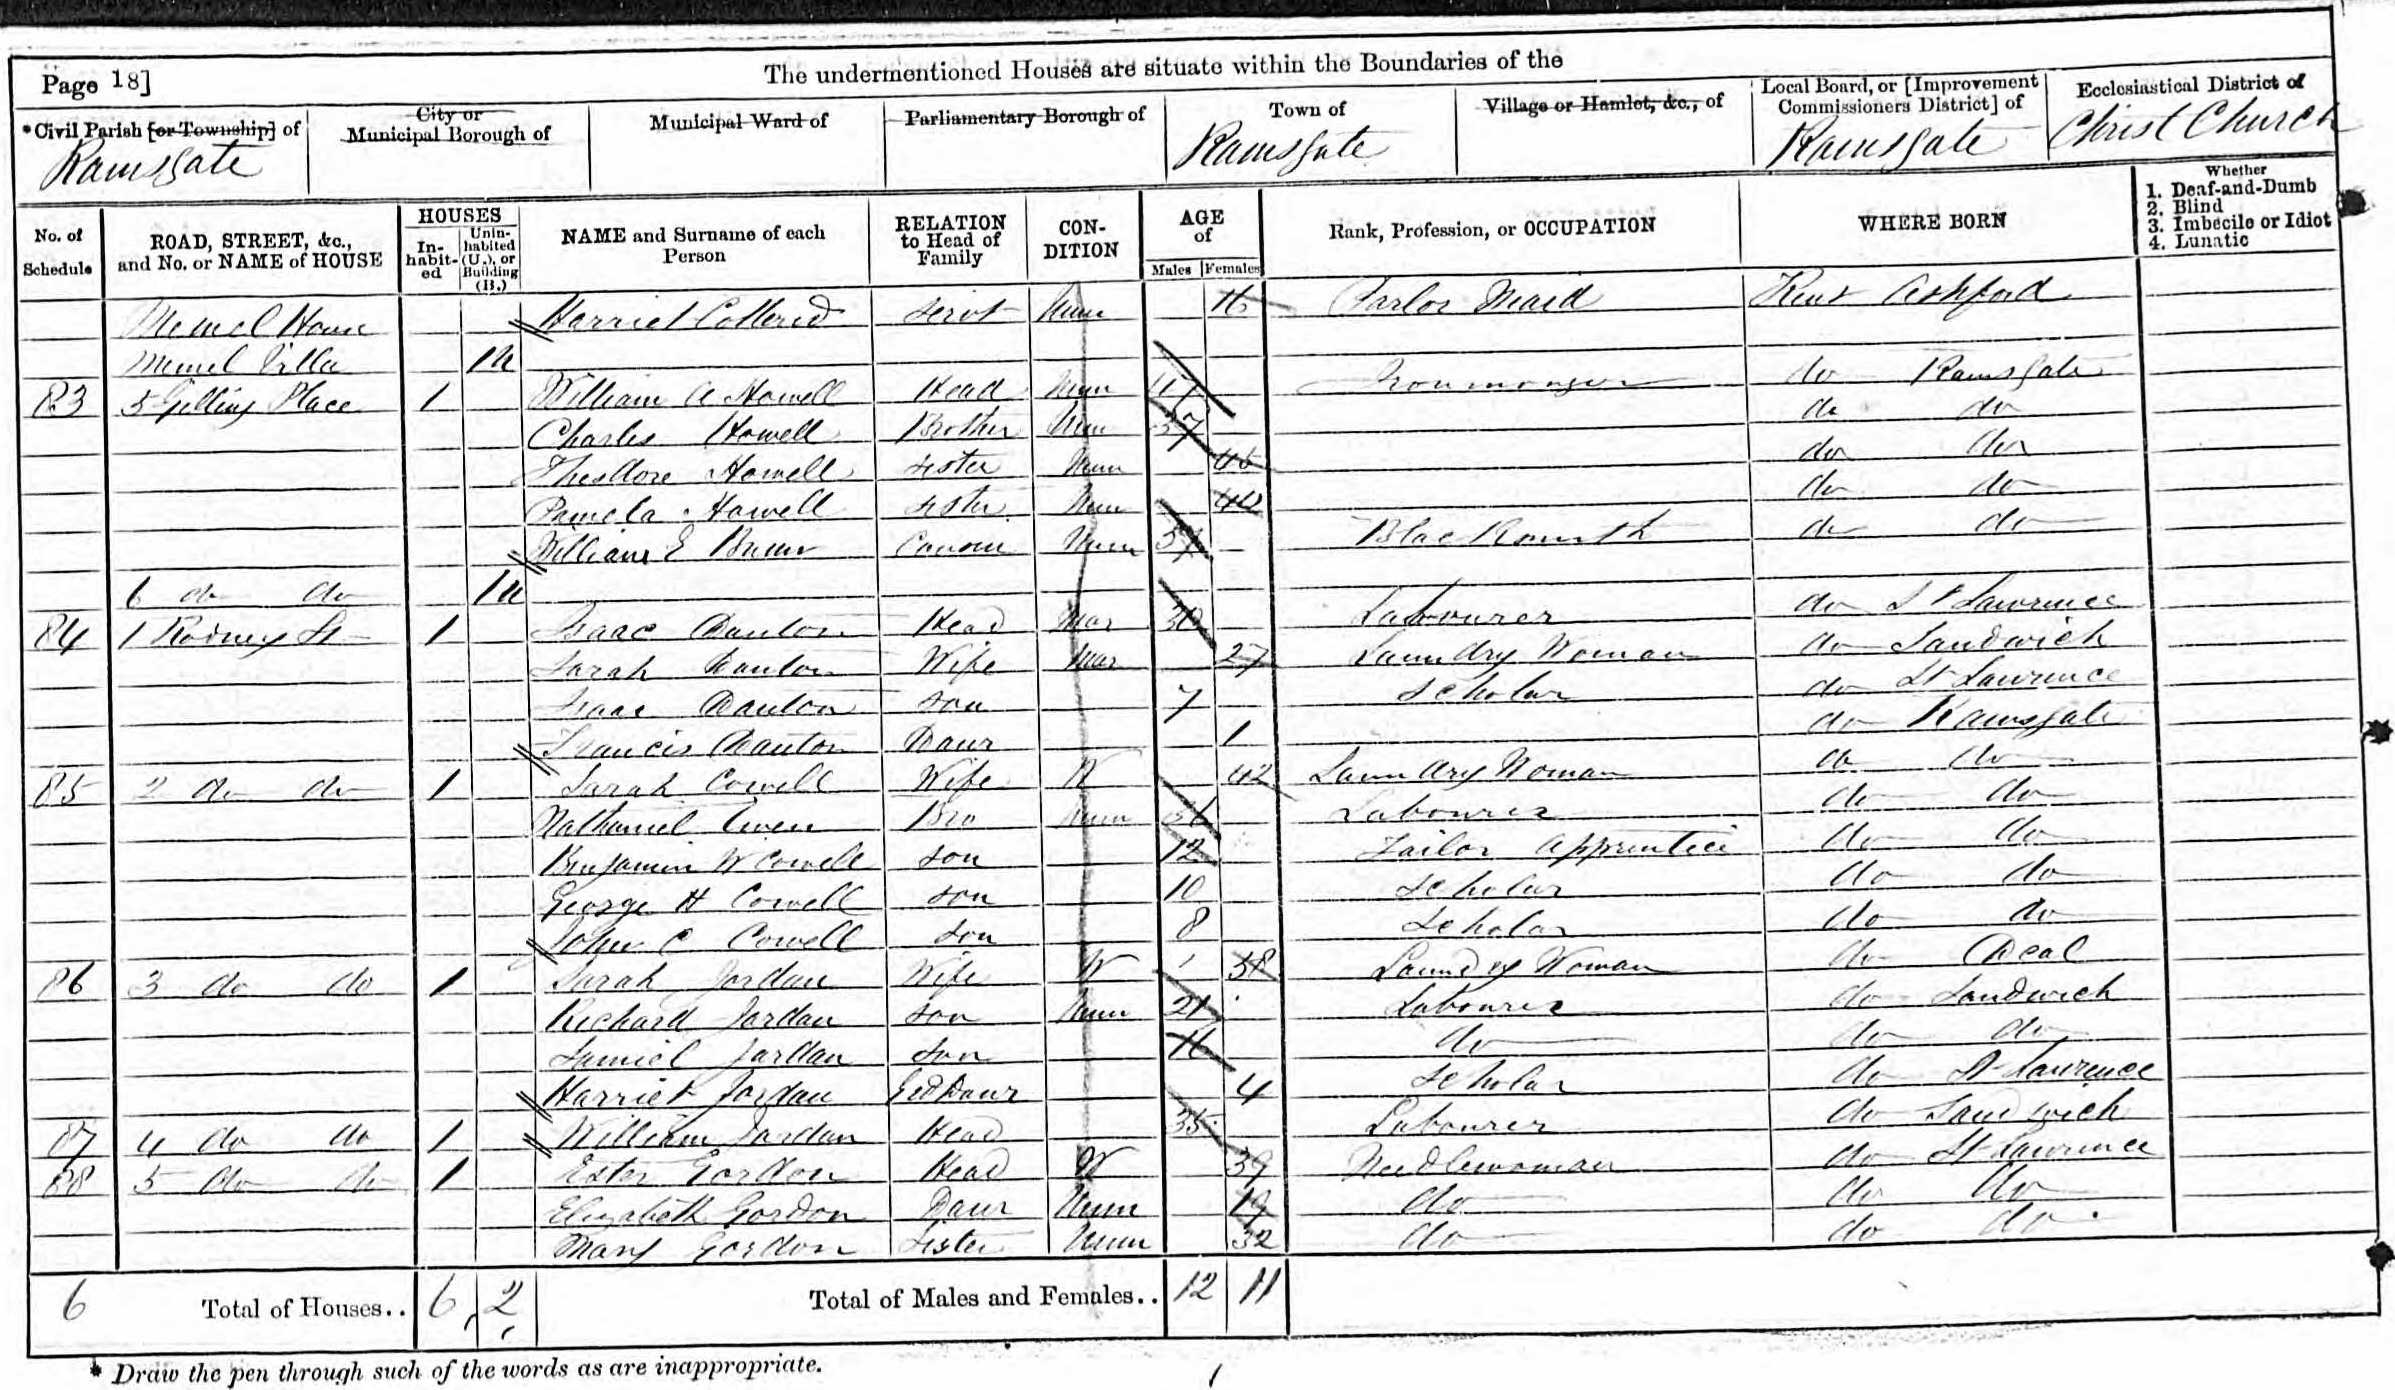 Page 18]
The undermentioned Houses are situate within the Boundaries of the
*Civil Parish [or Township] of
Ramsgate
City or
Municipal Borough of
Municipal Ward of
Parliamentary Borough of
Town of
Ramsgate
Village or Hamlet, &c., of
Local Board, or [Improvement
Commissioners District] of
Ramsgate
Ecclesiastical District of
Christ Church
No. of
Schedule
ROAD, STREET, &c.,
and No. or NAME of HOUSE
HOUSES
In-
habit-
ed
Unin-
habited
(U.), or
Building
(B.)
NAME and Surname of each
Person
RELATION
to Head of
Family
CON-
DITION
AGE
of
Males Females
Rank, Profession, or OCCUPATION
WHERE BORN
Whether
1. Deaf-and-Dumb
2. Blind
3. Imbecile or Idiot
4. Lunatic
Memel House Harriet Servt Unm 16 Parlor Maid Kent Ashford
Memel Villa 1 u
83 5 Place 1 William A Howell Head Unm 47 Ironmonger do Ramsgate
Charles Howell Brother Unm 37 do do
Howell Sister Unm do do
Pamela Howell Sister Unm do do
William E Cousin Unm Blacksmith do do
6 do do 1 u
84 1 Rodney St 1 Isaac Danton Head Mar 30 Labourer do St Lawrence
Sarah Danton Wife Mar 27 Laundry Woman do Sandwich
Isaac Danton Son 7 Scholar do St Lawrence
Francis Danton Daur 1 do Ramsgate
85 2 do do 1 Sarah Cowell Wife W 42 Laundry Woman do do
Nathaniel Unm Labourer do do
Benjamin W Cowell Son 12 Tailor Apprentice do do
George H Cowell Son 10 Scholar do do
John C Cowell Son 8 Scholar do do
86 3 do do 1 Sarah Jordan Wife W 58 Laundry Woman do Deal
Richard Jordan Son Unm 21 Labourer do Sandwich
Jordan Son 16 do do do
Harriet Jordan Gd Daur 4 Scholar do St Lawrence
87 4 do do 1 William Jordan Head 35 Labourer do Sandwich
88 5 do do 1 Ester Gordon Head W 39 Needlewoman do St Lawrence
Elizabeth Gordon Daur Unm 19 do do do
Mary Gordon Sister Unm 32 do do do
6 Total of Houses.. 6 2 Total of Males and Females.. 12 11
* Draw the pen through such of the words as are inappropriate.